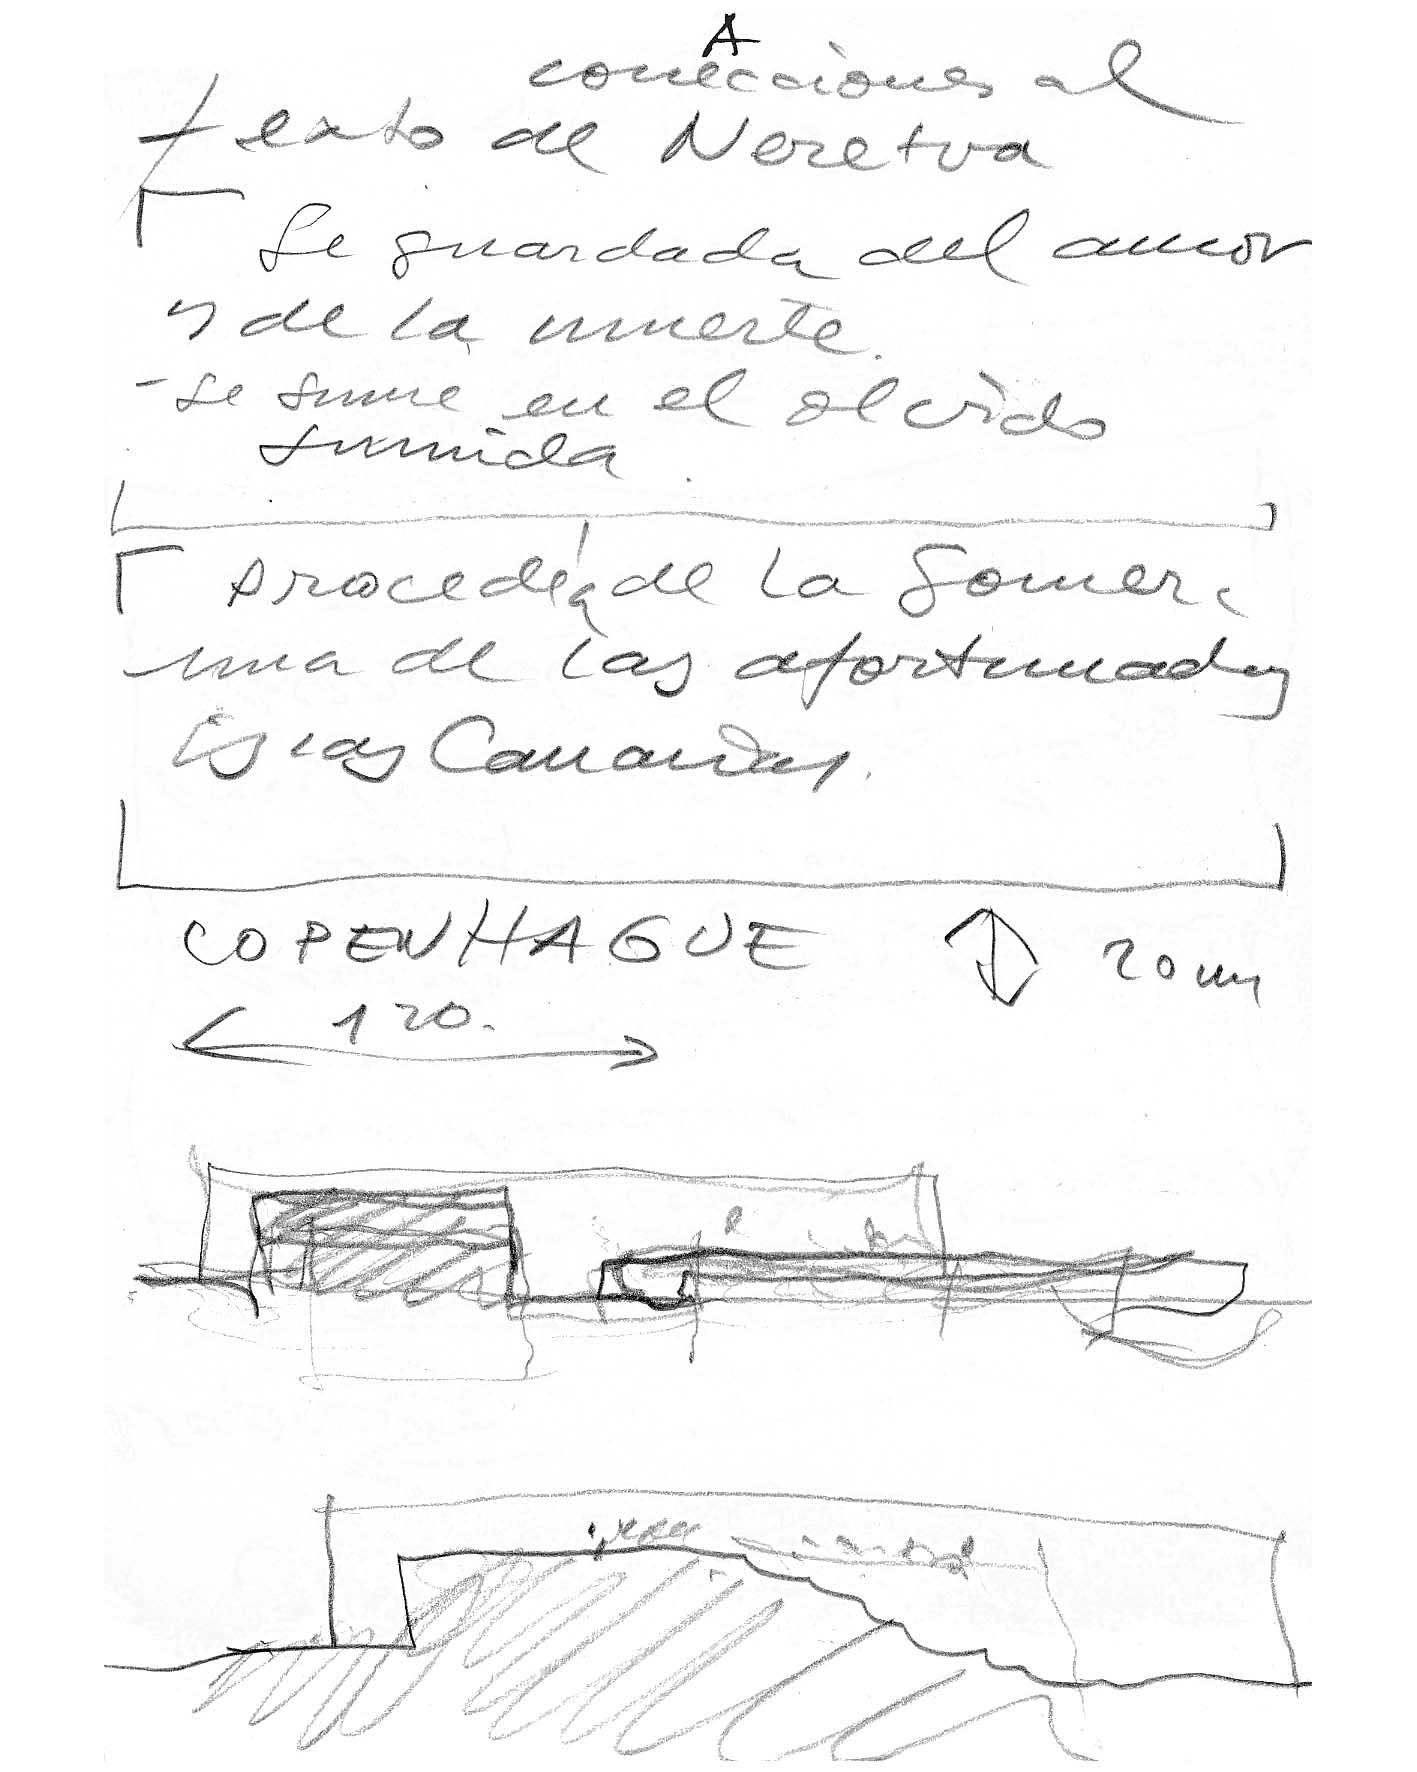 A
conecciones al
texto de Neretva
Se guardada del amor
y de la muerte.
- se sume en el olvido
sumida
procedía de la Gomera
una de las afortunadas
islas Canarias.
COPENHAGUE 20 m
120.